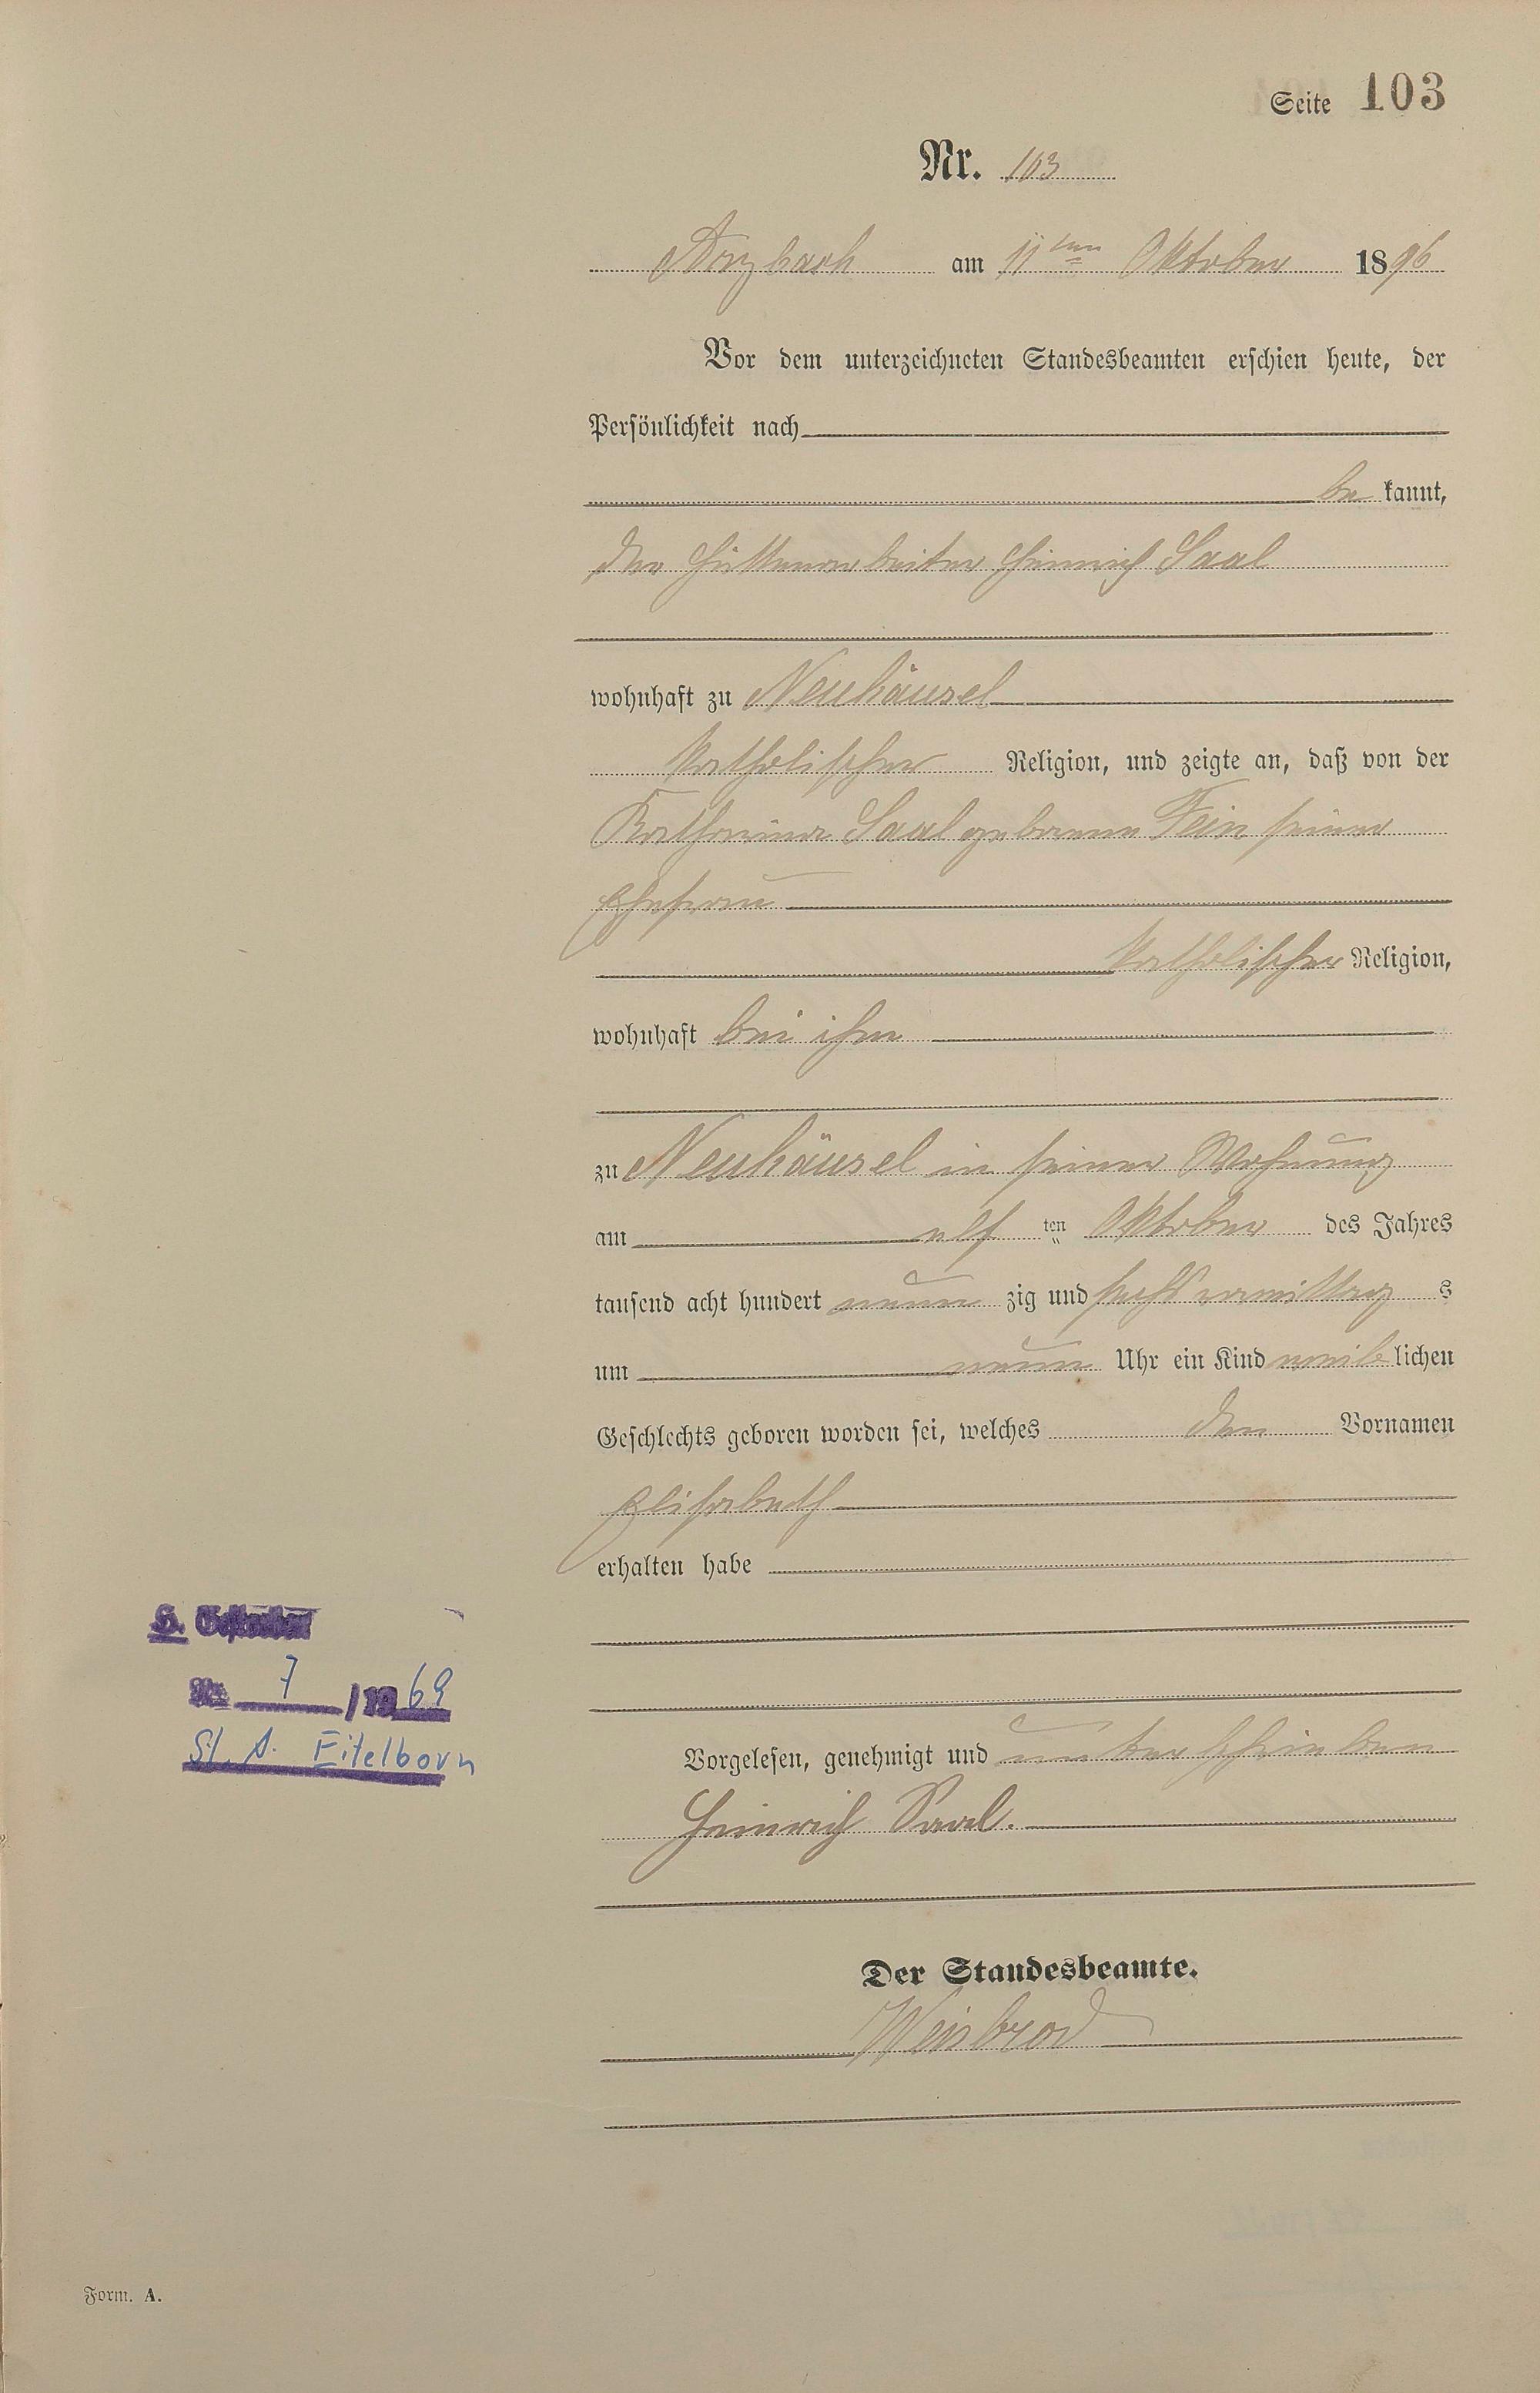 Seite 103
Nr. 103
Arzbach am 11ten Oktober 1896
Vor dem unterzeichneten Standesbeamten erschien heute, der
Persönlichkeit nach
be kannt,
der Hüttenarbeiter Heinrich Saal
wohnhaft zu Neuhäusel
katholischer Religion, und zeigte an, daß von der
Katharina Saal geborene Fein seiner
Ehefrau
katholischer Religion,
wohnhaft bei ihm
zu Neuhäusel in seiner Wohnung
am elf ten Oktober des Jahres
tausend acht hundert neun zig und sechs vormittag s
um neun Uhr ein Kind weib lichen
Geschlechts geboren worden sei, welches den Vornamen
Elisabeth
erhalten habe
Vorgelesen, genehmigt und unterschrieben
Heinrich Saal.
Der Standesbeamte.
Weisbrod
Nr. 7 / 1969
St. A. Eitelborn
Form. A.